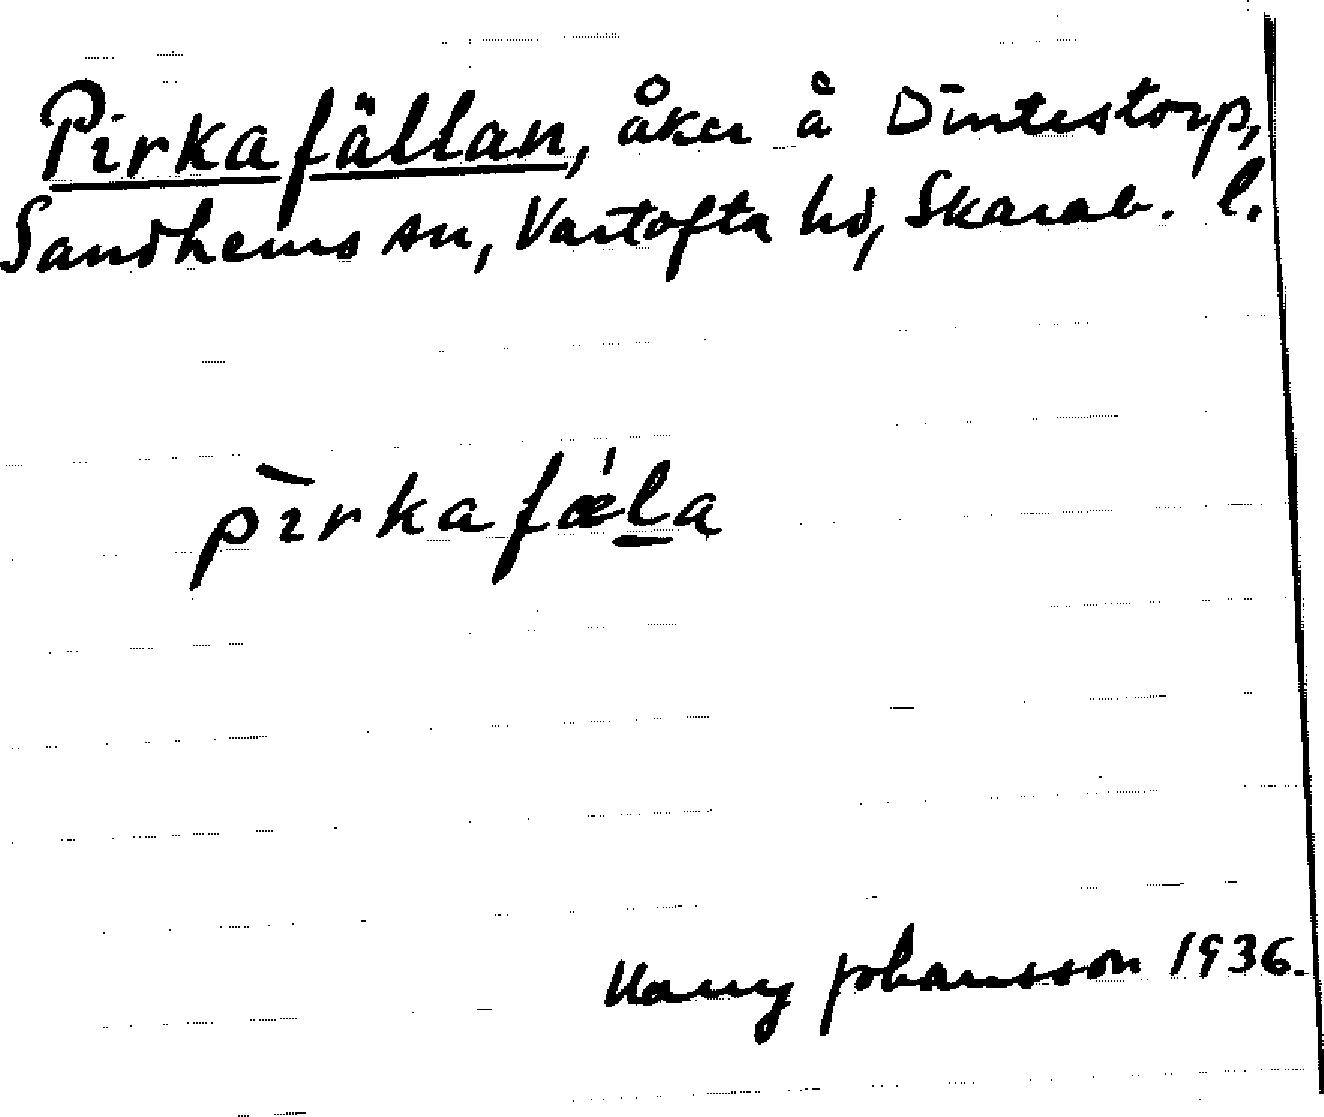 Pirkafällan, åker å Dintestorp,
Sandhems sn, Vartofta hd, Skarab. l.
pìrkafæ̀la
Harry Johansson 1936.